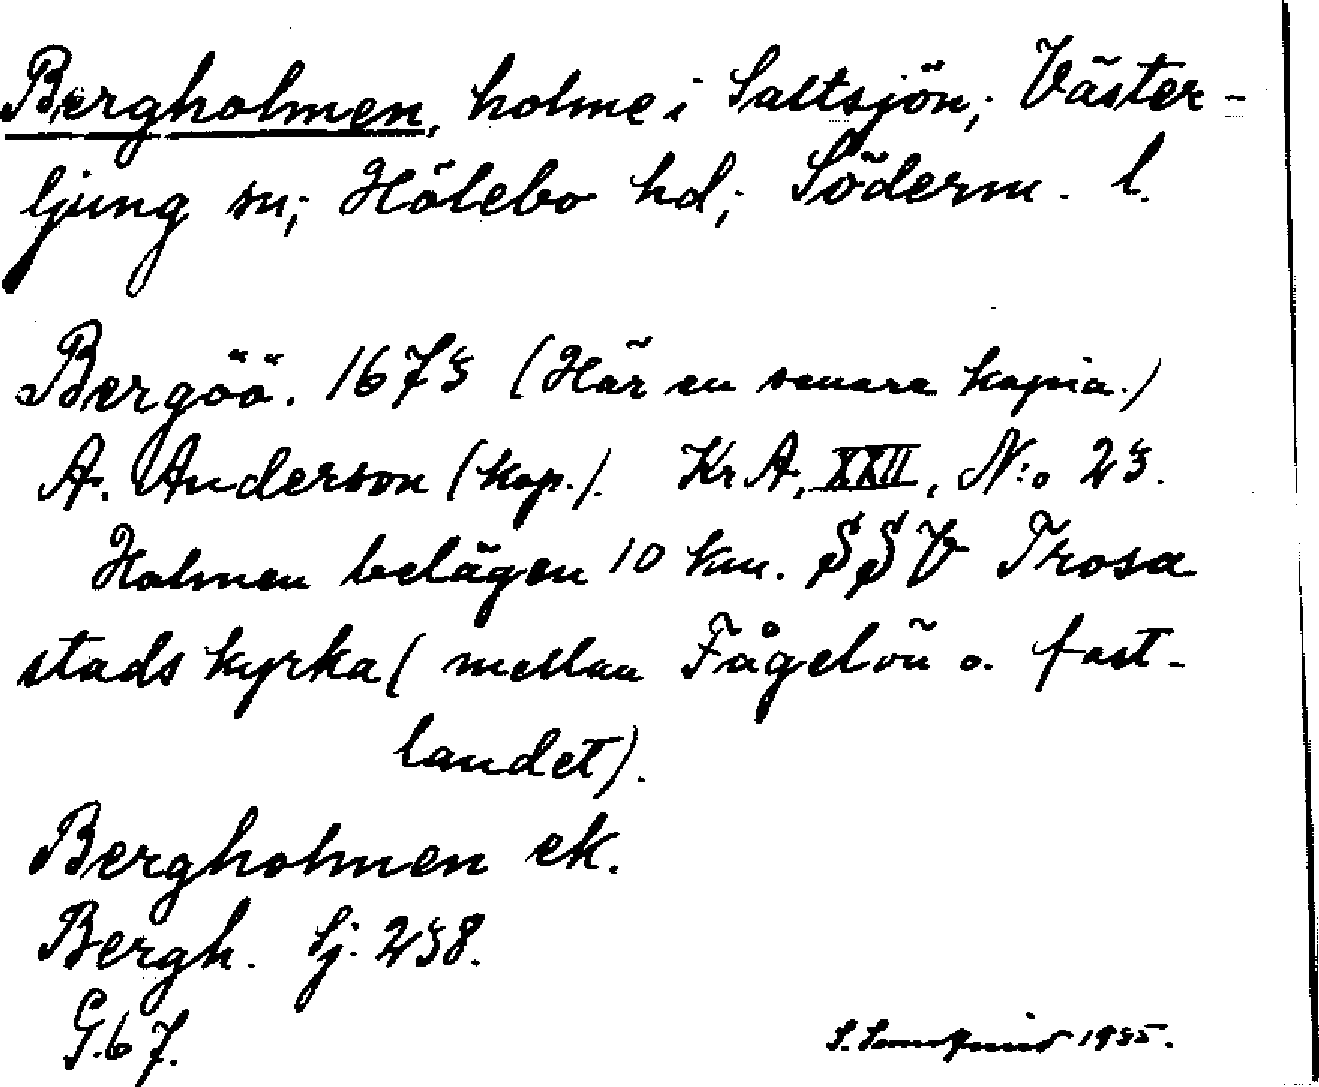 Bergholmen, holme i Saltsjön; Väster-
ljung sn; Hölebo hd; Söderm. l.
Bergöö. 1673 (Här en senare kopia.)
A. Anderson (kop.). Kr A, XXII, N:o 23.
Holmen belägen 10 km. SSV Trosa
stads kyrka (mellan Fågelön o. fast-
landet).
Bergholmen ek.
Bergh. Sj. 238.
G. 67.
S. 1935.